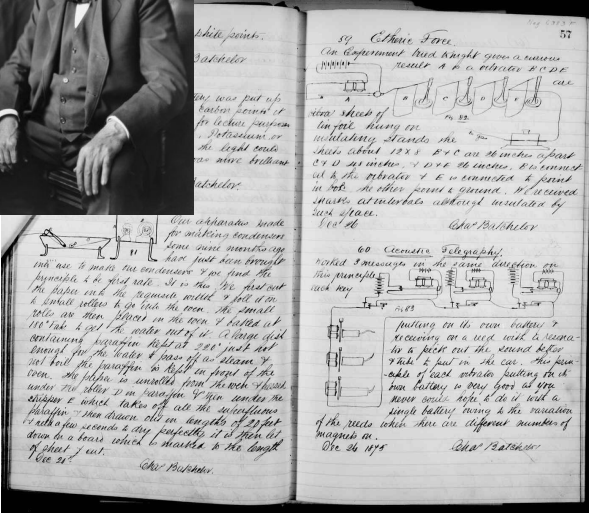 white points.
Batchelor
was put up
carbon points
for lecture purposes
Potassium or
the light could
was more brilliant
Batchelor
Our apparatus made
for making condensers
some nine months ago
have just been brought
into use to make our condensers & we find the
principle to be first rate. It is this We first cut
the paper into the requisite widths & roll it on
to small rollers to go into the oven. The small
rolls are then placed in the oven & baked at
180° Fah to get the water out of it. A large dish
containing paraffin kept at 225° just hot
enough for the water to pass off as steam & 
not boil the paraffin is kept in front of the
oven. The paper is unrolled from the oven & passed
under the roller D in Paraffin & then under the
stripper E which takes off all the superfluous
paraffin & then drawn out in lengths of 20 feet
& let a few seconds to dry perfectly it is then let
down on a board which is marked to the length
of sheet & cut.
Dec 28th
Chas Batchelor.
57
59 Etheric Force.
An Experiment tried tonight gives a curious
result A is a vibrator B C D E
are
sheets of
tin foil hung on
Fig 82
insulating stands the
sheets about 12 x 8 B & C are 26 inches apart
C & D 24 inches & D & E 26 inches. B is connect
ed to the vibrator & E is connected to point
in box the other point to ground. We received
sparks at intervals although insulated by
such space.
Dec 26
Chas Batchelor
60 Acoustic Telegraphy.
Worked 3 messages in the same direction on
this principle
each key
Fig 83
putting on its own battery &
receiving on a reed with a resona-
tor to pick out the sound better
& tube to put in the ear. This prin-
ciple of each vibrator putting on its
own battery is very good as you
never could hope to do it with a
single battery owing to the variation
of the reeds when there are different numbers of
magnets on.
Dec 26 1875
Chas Batchelor